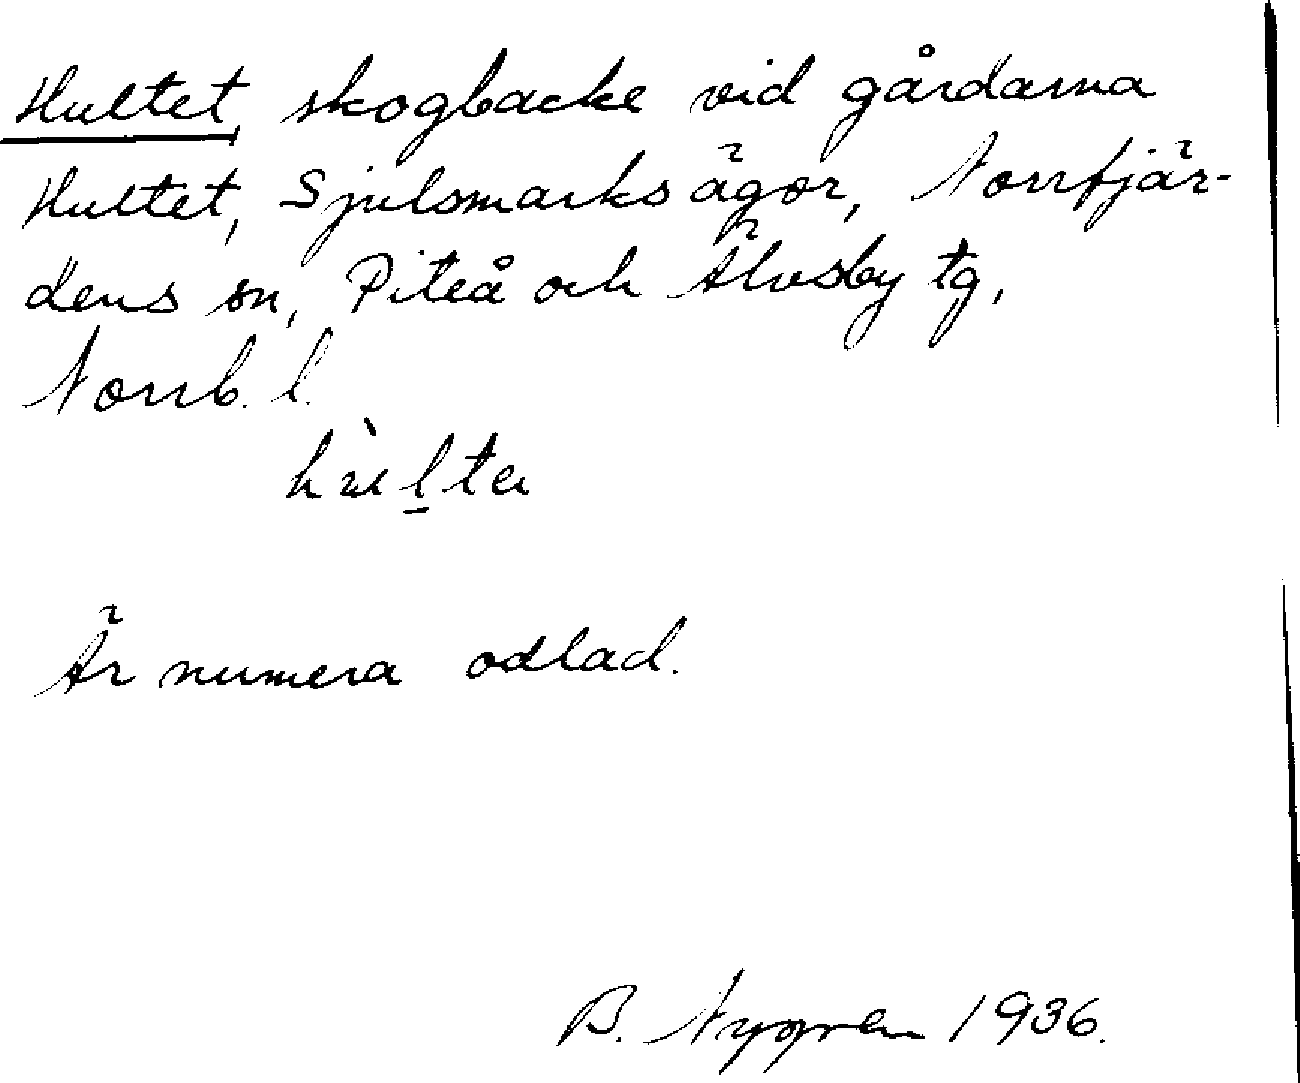 Hultet, skogbacke vid gårdarna
Hultet, Sjulsmarks ägor, Norrfjär-
dens sn, Piteå och Älvsby tg,
Norrb. l.
Är numera odlad.
B. Nygren 1936.